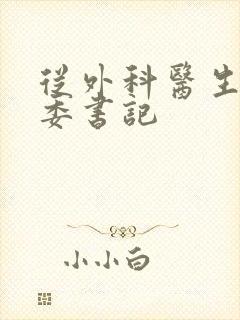 從外科醫生
委書記
小小白